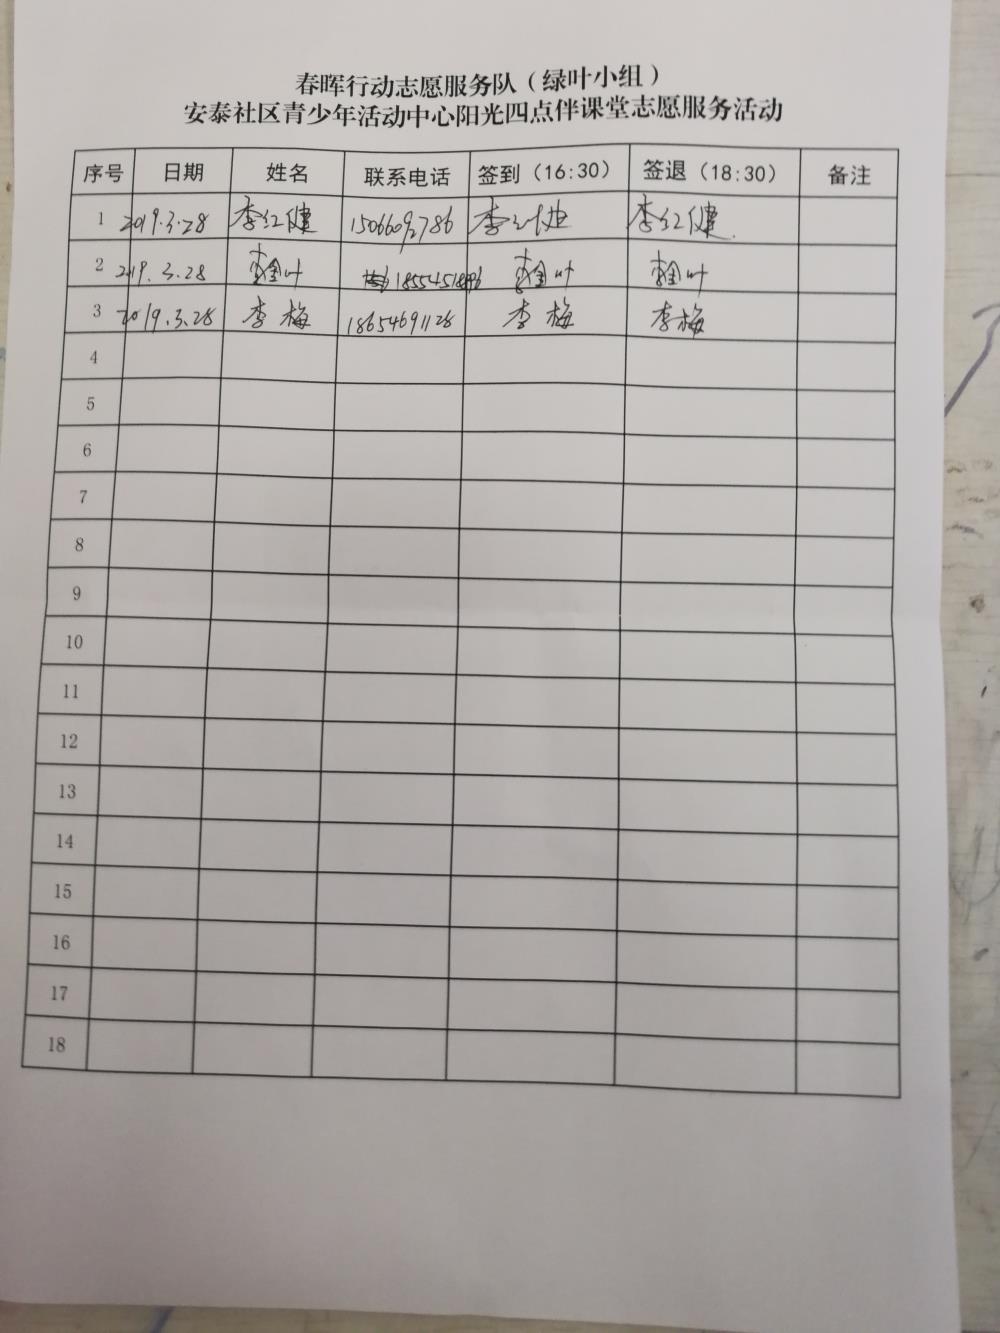 春晖行动志愿服务队（绿叶小组）
安泰社区青少年活动中心阳光四点伴课堂志愿服务活动
序号 日期 姓名 联系电话 签到（16:30） 签退（18:30） 备注
1 2019.3.28 李红健 李红健 李红健
2 2019.3.28
3 2019.3.28 李梅 18654691128 李梅 李梅
4
5
6
7
8
9
10
11
12
13
14
15
16
17
18